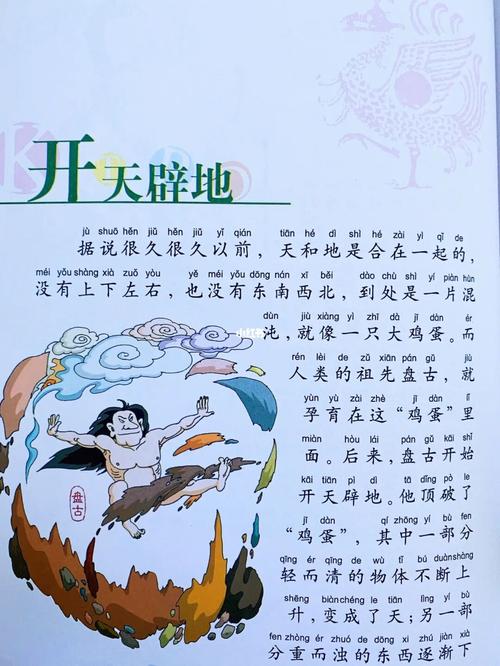 开天辟地
jù shuō hěn jiǔ hěn jiǔ yǐ qián tiān hé dì shì hé zài yì qǐ de
据说很久很久以前，天和地是合在一起的，
méi yǒu shàng xià zuǒ yòu yě méi yǒu dōng nán xī běi dào chù shì yí piàn hùn
没有上下左右，也没有东南西北，到处是一片混
dùn jiù xiàng yì zhī dà jī dàn ér
沌，就像一只大鸡蛋。而
rén lèi de zǔ xiān pán gǔ jiù
人类的祖先盘古，就
yùn yù zài zhè jī dàn lǐ
孕育在这“鸡蛋”里
miàn hòu lái pán gǔ kāi shǐ
面。后来，盘古开始
kāi tiān pì dì tā dǐng pò le
开天辟地。他顶破了
jī dàn qí zhōng yí bù fen
“鸡蛋”，其中一部分
qīng ér qīng de wù tǐ bú duàn shàng
轻而清的物体不断上
shēng biàn chéng le tiān lìng yí bù
升，变成了天；另一部
fen zhòng ér zhuó de dōng xi zhú jiàn xià
分重而浊的东西逐渐下
盘古
小红书